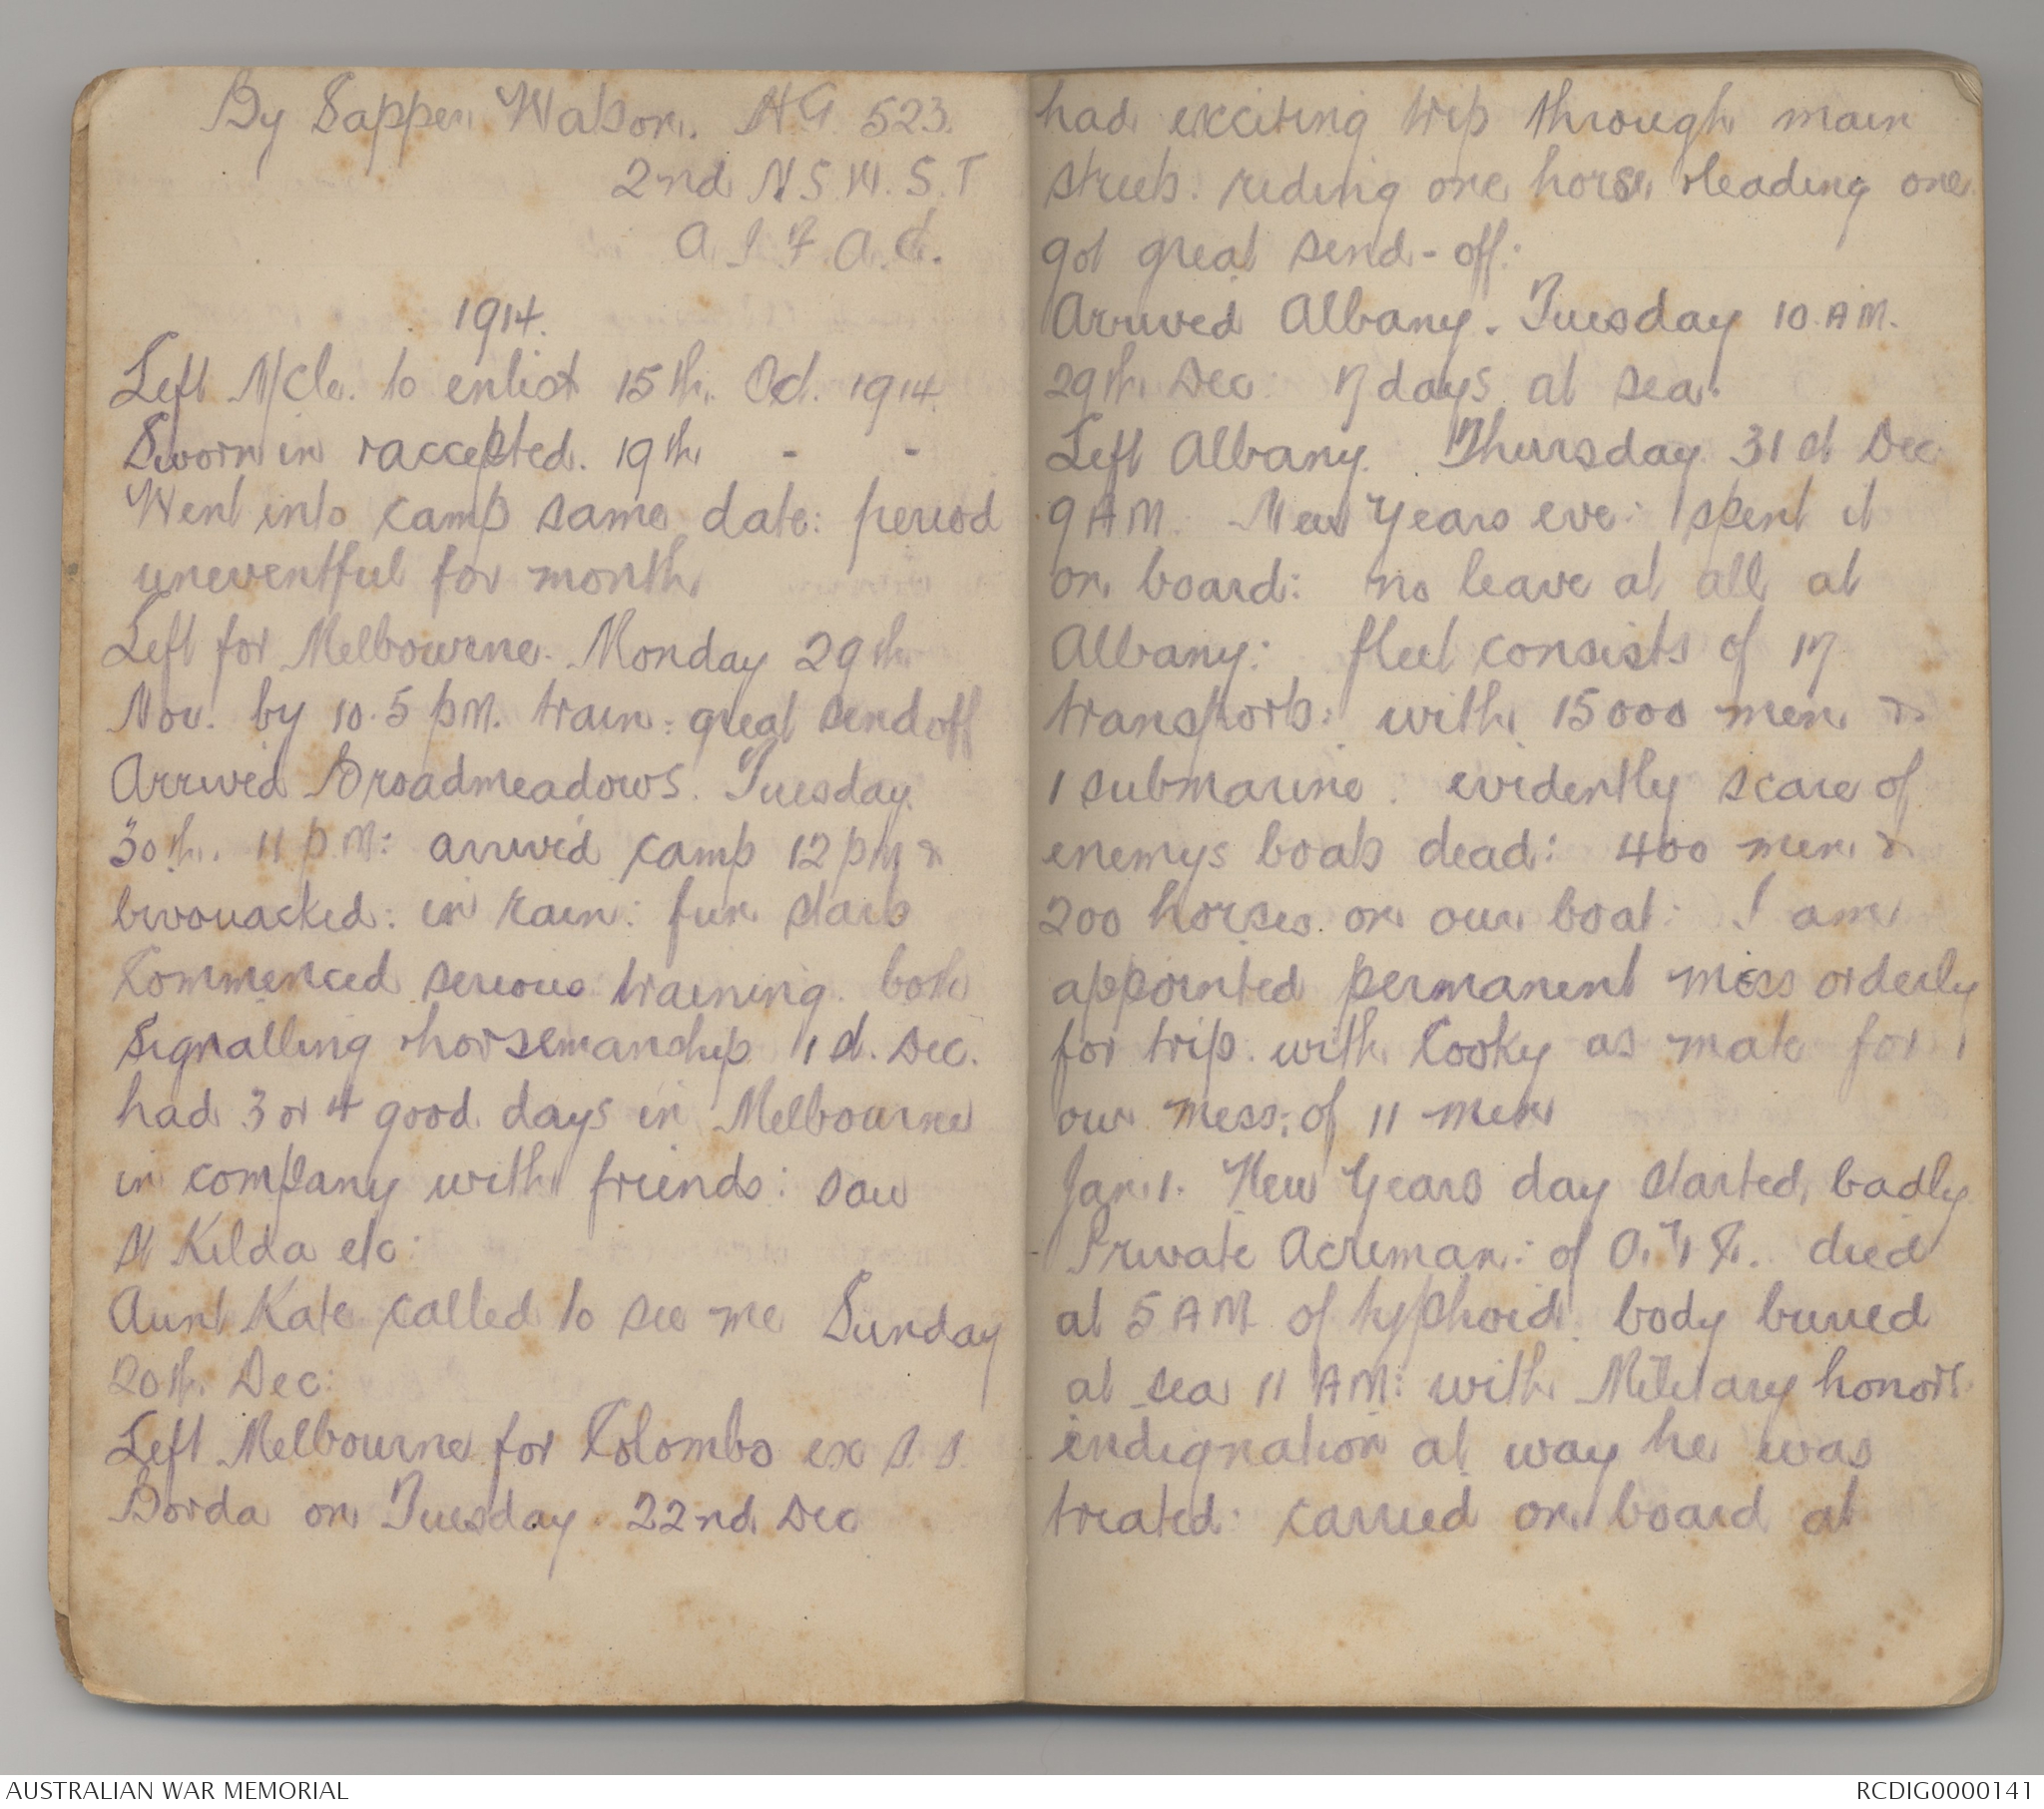 By Sapper Watson. H.G. 523.
2nd N.S.W. S. T
A. I. F. A.C.
1914.
Left N/cle. to enlist 15th. Oct. 1914.
Sworn in & accepted. 19th - -
Went into camp same date: period
uneventful for month
Left for Melbourne. Monday 29th
Nov. by 10.5 pm. train: great send off
Arrived Broadmeadows. Tuesday.
30th. 11 p M: arrived camp 12 pm &
bivouacked: in rain: fun starts
Commenced serious training. both
Signalling & horsemanship 1st. Dec.
had 3 or 4 good days in Melbourne
in company with friends: saw
St Kilda etc:
Aunt Kate called to see me Sunday
20th. Dec:
Left Melbourne for Colombo ex S.S.
Borda on Tuesday 22nd Dec
had exciting trip through main
streets: riding one horse & leading one
got great send-off:
Arrived Albany. Tuesday 10 AM.
29th. Dec: 7 days at sea:
Left Albany. Thursday 31st Dec
9 AM. New Years eve: spent it
on board: no leave at all at
Albany: fleet consists of 17
transports: with 15000 men &
1 submarine: evidently scare of
enemys boats dead: 400 men &
200 horses on our boat: I am
appointed permanent mess orderly
for trip with Cooky as mate for
our mess: of 11 men
Jan. 1. New Years day started badly
Private Acreman: of D. T. &. died
at 5 AM of typhoid: body buried
at sea 11 AM: with Military honors
indignation at way he was
treated: carried on board at
AUSTRALIAN WAR MEMORIAL
RCDIG0000141